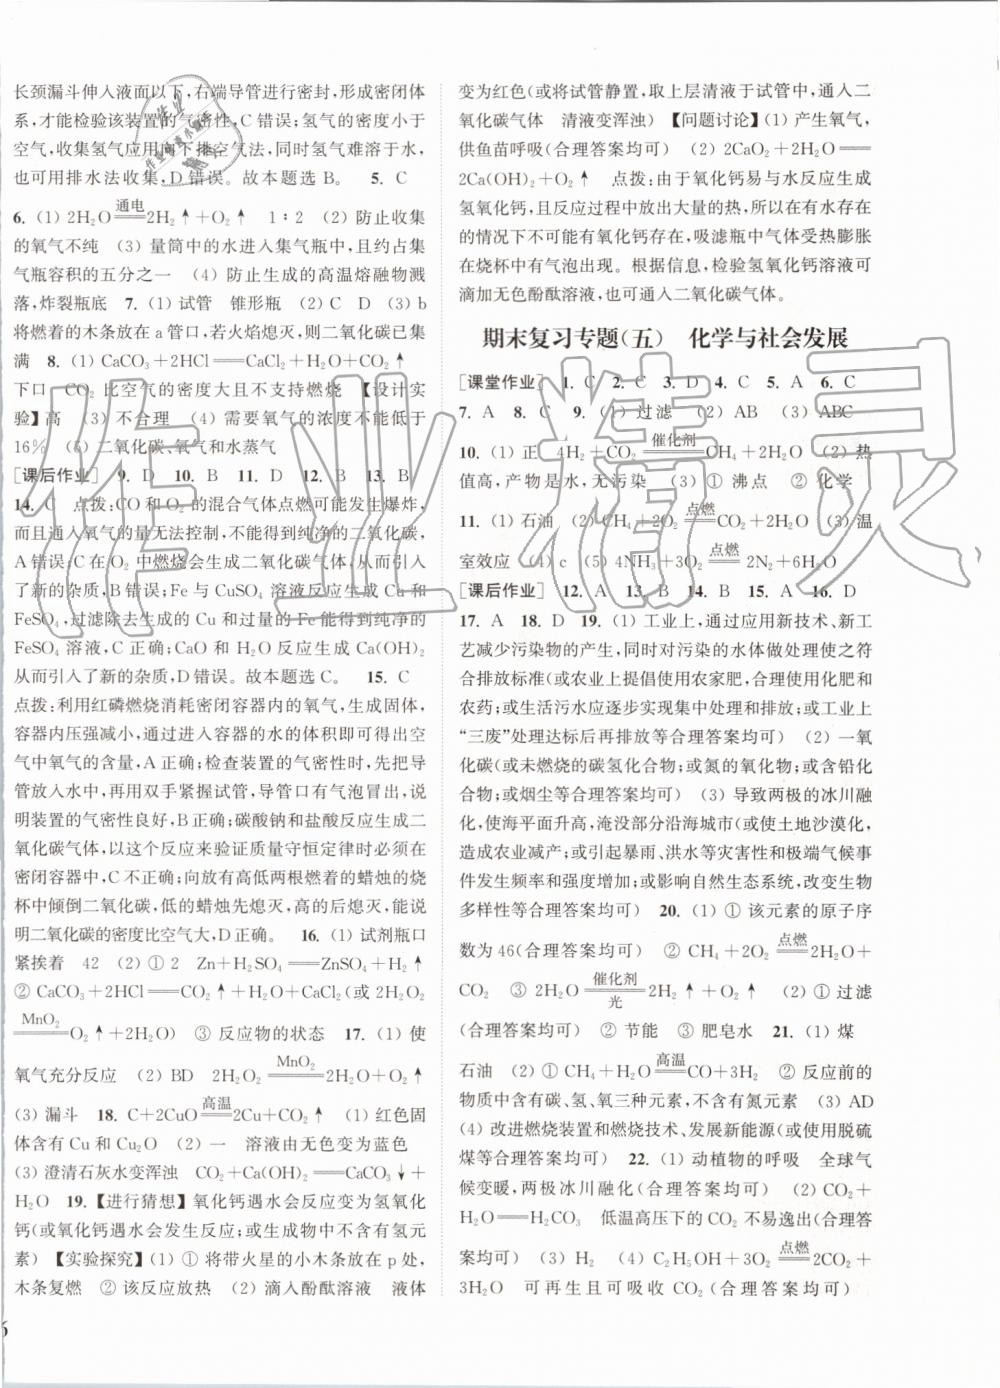 长颈漏斗伸入液面以下,右端导管进行密封,形成密闭体
系,才能检验该装置的气密性,C错误;氢气的密度小于
空气,收集氢气应用向下排空气法,同时氢气难溶于水,
也可用排水法收集,D错误。故本题选B。 5. C
6. (1) 2H₂O 通电 2H₂↑+O₂↑ 1∶2 (2) 防止收集
的氧气不纯 (3) 量筒中的水进入集气瓶中,且约占集
气瓶容积的五分之一 (4) 防止生成的高温熔融物溅
落,炸裂瓶底 7. (1) 试管 锥形瓶 (2) C D (3) b
将燃着的木条放在a管口,若火焰熄灭,则二氧化碳已集
满 8. (1) CaCO₃+2HCl══CaCl₂+H₂O+CO₂↑
下口 CO₂比空气的密度大且不支持燃烧 【设计实
验】高 (3) 不合理 (4) 需要氧气的浓度不能低于
16% (5) 二氧化碳、氧气和水蒸气
[课后作业] 9. D 10. B 11. D 12. B 13. B
14. C 点拨:CO和O₂的混合气体点燃可能发生爆炸,
而且通入氧气的量无法控制,不能得到纯净的二氧化碳,
A错误;C在O₂中燃烧会生成二氧化碳气体,从而引入
了新的杂质,B错误;Fe与CuSO₄溶液反应生成Cu和
FeSO₄,过滤除去生成的Cu和过量的Fe能得到纯净的
FeSO₄溶液,C正确;CaO和H₂O反应生成Ca(OH)₂
从而引入了新的杂质,D错误。故本题选C。 15. C
点拨:利用红磷燃烧消耗密闭容器内的氧气,生成固体,
容器内压强减小,通过进入容器的水的体积即可得出空
气中氧气的含量,A正确;检查装置的气密性时,先把导
管放入水中,再用双手紧握试管,导管口有气泡冒出,说
明装置的气密性良好,B正确;碳酸钠和盐酸反应生成二
氧化碳气体,以这个反应来验证质量守恒定律时必须在
密闭容器中,C不正确;向放有高低两根燃着的蜡烛的烧
杯中倾倒二氧化碳,低的蜡烛先熄灭,高的后熄灭,能说
明二氧化碳的密度比空气大,D正确。 16. (1) 试剂瓶口
紧挨着 42 (2) ① 2 Zn+H₂SO₄══ZnSO₄+H₂↑
② CaCO₃+2HCl══CO₂↑+H₂O+CaCl₂(或2H₂O₂
MnO₂ O₂↑+2H₂O) ③ 反应物的状态 17. (1) 使
氧气充分反应 (2) BD 2H₂O₂ MnO₂ 2H₂O+O₂↑
(3) 漏斗 18. C+2CuO 高温 2Cu+CO₂↑ (1) 红色固
体含有Cu和Cu₂O (2) 一 溶液由无色变为蓝色
(3) 澄清石灰水变浑浊 CO₂+Ca(OH)₂══CaCO₃↓+
H₂O 19. 【进行猜想】氧化钙遇水会反应变为氢氧化
钙(或氧化钙遇水会发生反应;或生成物中不含有氢元
素) 【实验探究】(1) ① 将带火星的小木条放在p处,
木条复燃 ② 该反应放热 (2) 滴入酚酞溶液 液体
变为红色(或将试管静置,取上层清液于试管中,通入二
氧化碳气体 清液变浑浊) 【问题讨论】(1) 产生氧气,
供鱼苗呼吸(合理答案均可) (2) 2CaO₂+2H₂O══
2Ca(OH)₂+O₂↑ 点拨:由于氧化钙易与水反应生成
氢氧化钙,且反应过程中放出大量的热,所以在有水存在
的情况下不可能有氧化钙存在,吸滤瓶中气体受热膨胀
在烧杯中有气泡出现。根据信息,检验氢氧化钙溶液可
滴加无色酚酞溶液,也可通入二氧化碳气体。
期末复习专题(五) 化学与社会发展
[课堂作业] 1. C 2. C 3. D 4. C 5. A 6. C
7. A 8. C 9. (1) 过滤 (2) AB (3) ABC
10. (1) 正 4H₂+CO₂ 催化剂 CH₄+2H₂O (2) 热
值高,产物是水,无污染 (3) ① 沸点 ② 化学
11. (1) 石油 (2) CH₄+2O₂ 点燃 CO₂+2H₂O (3) 温
室效应 (4) c (5) 4NH₃+3O₂ 点燃 2N₂+6H₂O
[课后作业] 12. A 13. B 14. B 15. A 16. D
17. A 18. D 19. (1) 工业上,通过应用新技术、新工
艺减少污染物的产生,同时对污染的水体做处理使之符
合排放标准(或农业上提倡使用农家肥,合理使用化肥和
农药;或生活污水应逐步实现集中处理和排放;或工业上
“三废”处理达标后再排放等合理答案均可) (2) 一氧
化碳(或未燃烧的碳氢化合物;或氮的氧化物;或含铅化
合物;或烟尘等合理答案均可) (3) 导致两极的冰川融
化,使海平面升高,淹没部分沿海城市(或使土地沙漠化,
造成农业减产;或引起暴雨、洪水等灾害性和极端气候事
件发生频率和强度增加;或影响自然生态系统,改变生物
多样性等合理答案均可) 20. (1) ① 该元素的原子序
数为46(合理答案均可) ② CH₄+2O₂ 点燃 2H₂O+
CO₂ ③ 2H₂O 催化剂 光 2H₂↑+O₂↑ (2) ① 过滤
(合理答案均可) ② 节能 ③ 肥皂水 21. (1) 煤
石油 (2) ① CH₄+H₂O 高温 CO+3H₂ ② 反应前的
物质中含有碳、氢、氧三种元素,不含有氮元素 (3) AD
(4) 改进燃烧装置和燃烧技术、发展新能源(或使用脱硫
煤等合理答案均可) 22. (1) 动植物的呼吸 全球气
候变暖,两极冰川融化(合理答案均可) (2) CO₂+
H₂O══H₂CO₃ 低温高压下的CO₂不易逸出(合理答
案均可) (3) H₂ (4) C₂H₅OH+3O₂ 点燃 2CO₂+
3H₂O 可再生且可吸收CO₂(合理答案均可)
作业精灵
6